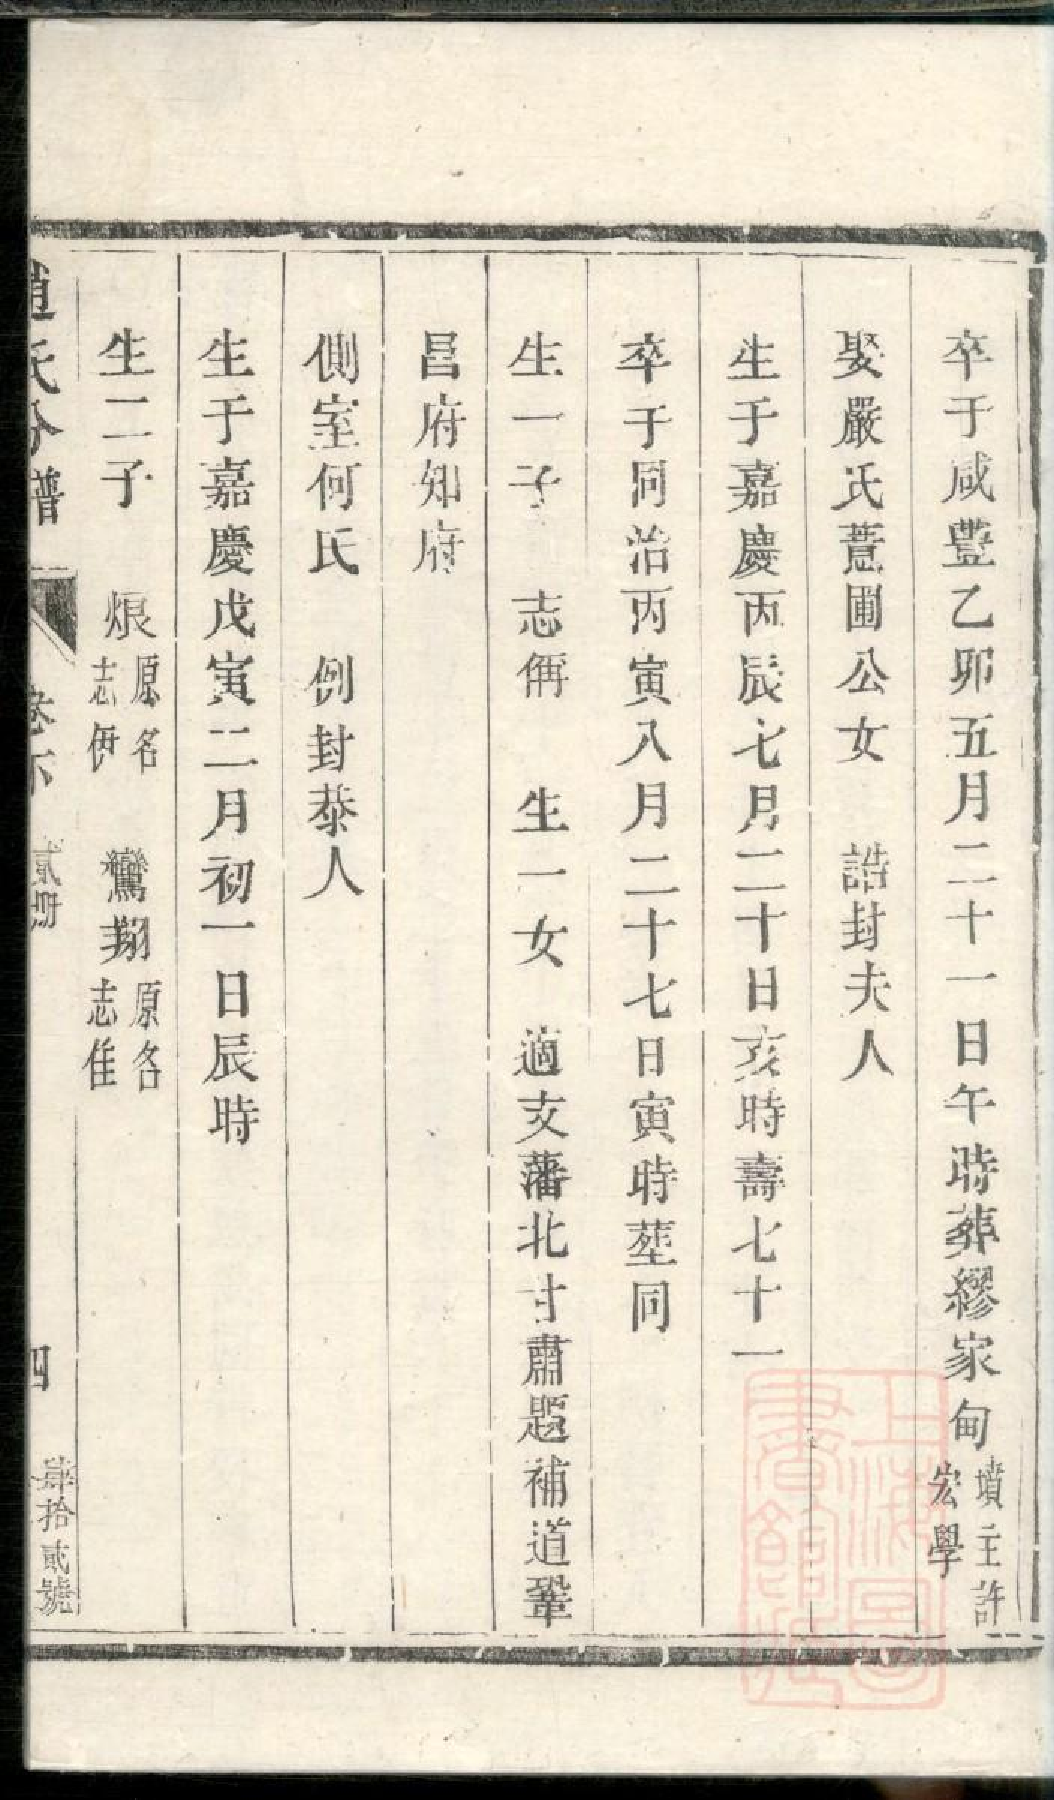 卒于咸豐乙卯五月二十一日午時葬繆家甸墳主許宏學
娶嚴氏薏圃公女　誥封夫人
生于嘉慶丙辰七月二十日亥時壽七十一
卒于同治丙寅八月二十七日寅時塟同
生一子　志偁　生一女　適支藩北寸肅題補道鞏
昌府知府
側室何氏　例封恭人
生于嘉慶戊寅二月初一日辰時
生二子　烺原名志伊　鸞翔原名志隹
趙氏分譜　卷下　貳册　四　肆拾貳號
上海圖書館藏